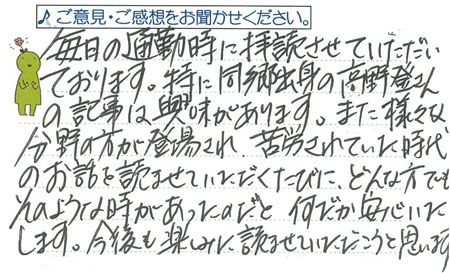 ♪ご意見・ご感想をお聞かせください。
毎日の通勤時に拝読させていただい
ております。特に同郷出身の高野登さん
の記事は興味があります。また様々な
分野の方が登場され、苦労されていた時代
のお話を読ませていただくたびに、どんな方でも
そのような時があったのだと何だか安心いた
します。今後も楽しみに読ませていただこうと思います